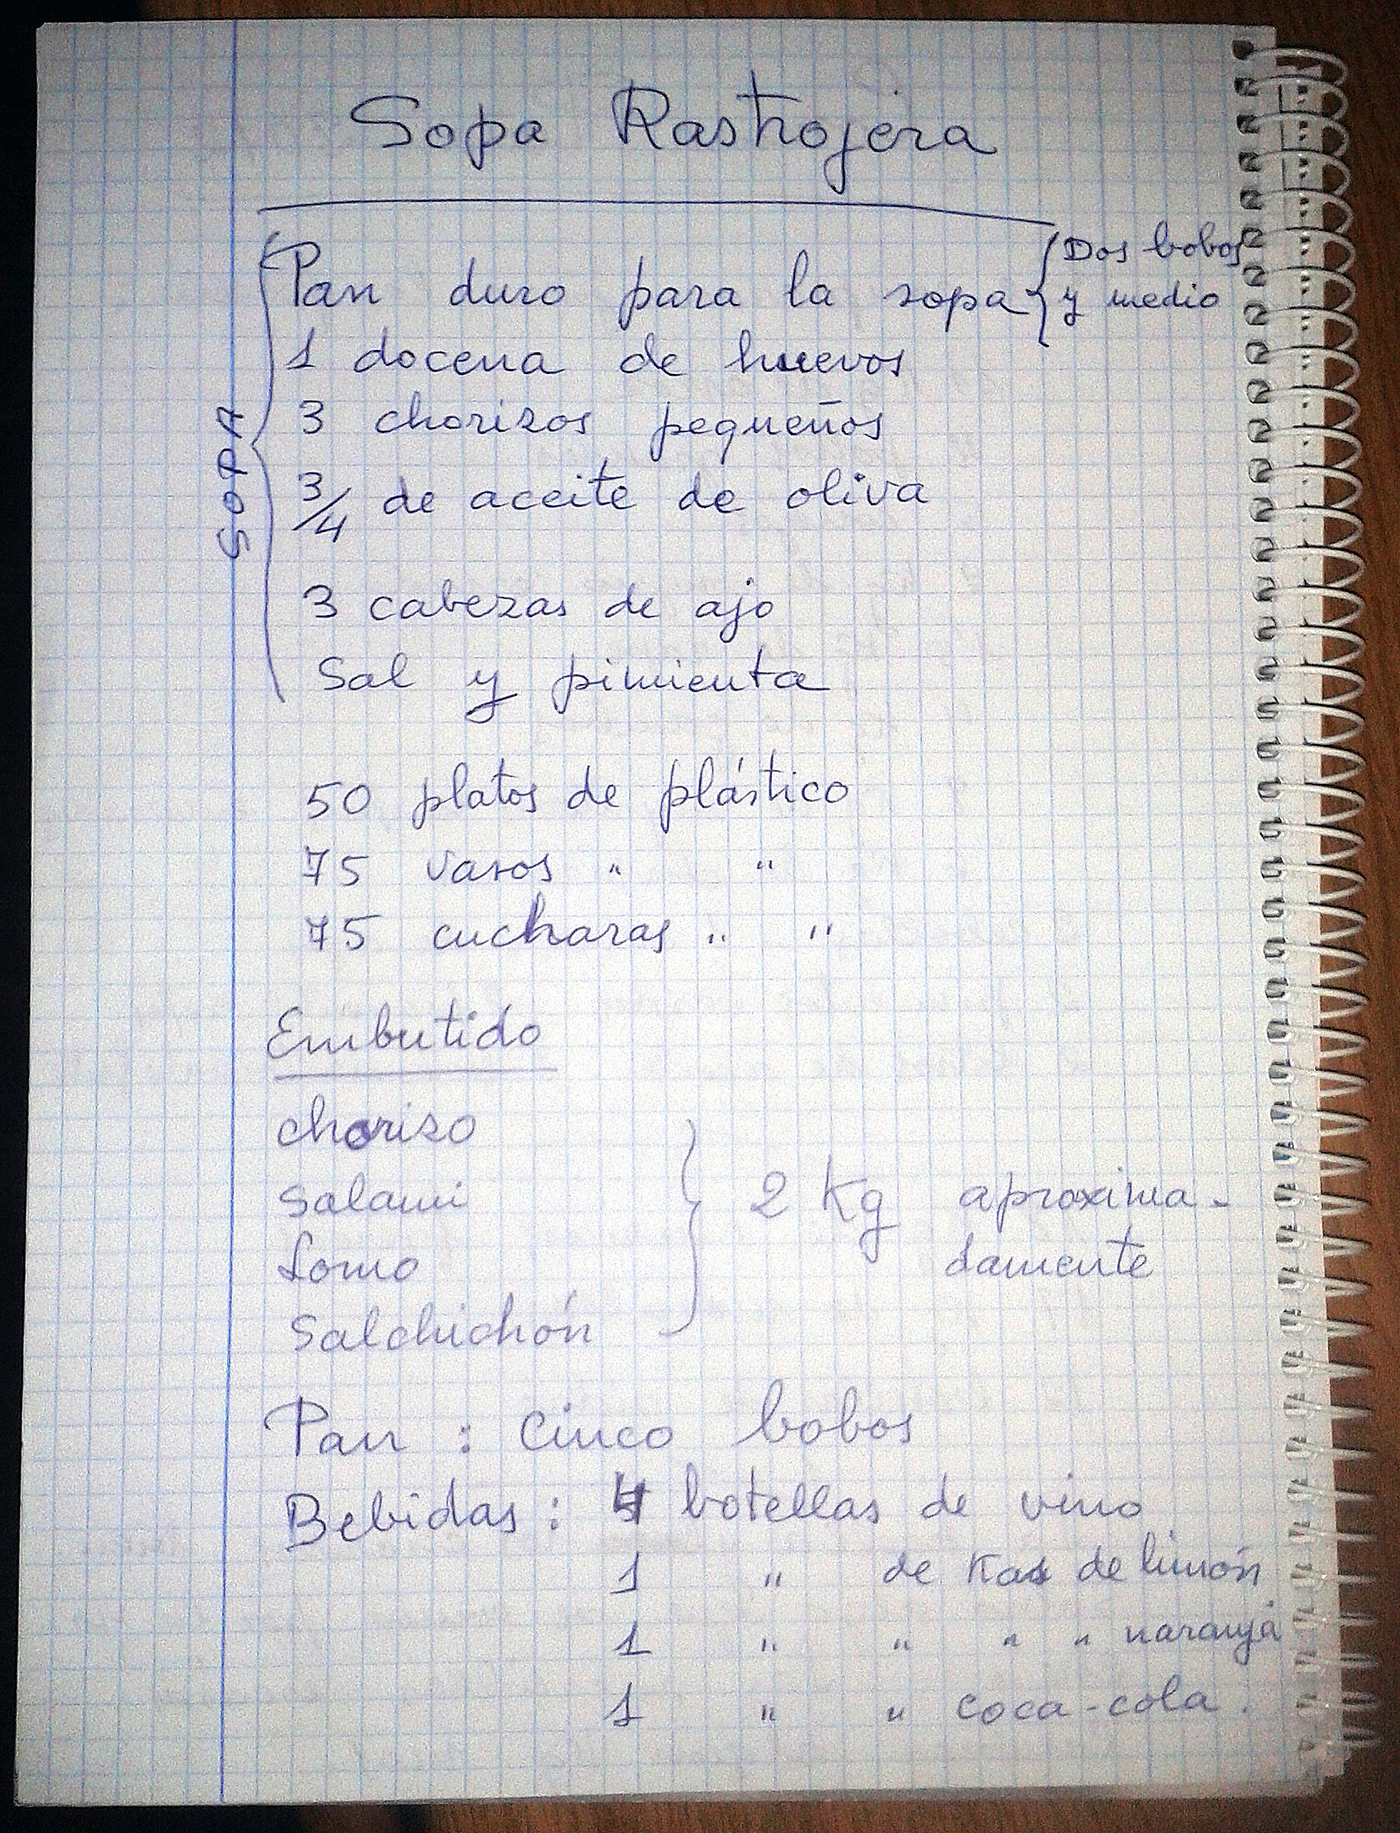 Sopa Rastrojera
Pan duro para la sopa { Dos bobos
y medio
SOPA
1 docena de huevos
3 chorizos pequeños
3/4 de aceite de oliva
3 cabezas de ajo
Sal y pimienta
50 platos de plástico
75 vasos " "
75 cucharas " "
Embutido
chorizo
Salami
Lomo
Salchichón
} 2 Kg aproxima-
damente
Pan : cinco bobos
Bebidas : 4 botellas de vino
1 " de Kas de limón
1 " " " " naranja
1 " " coca-cola.